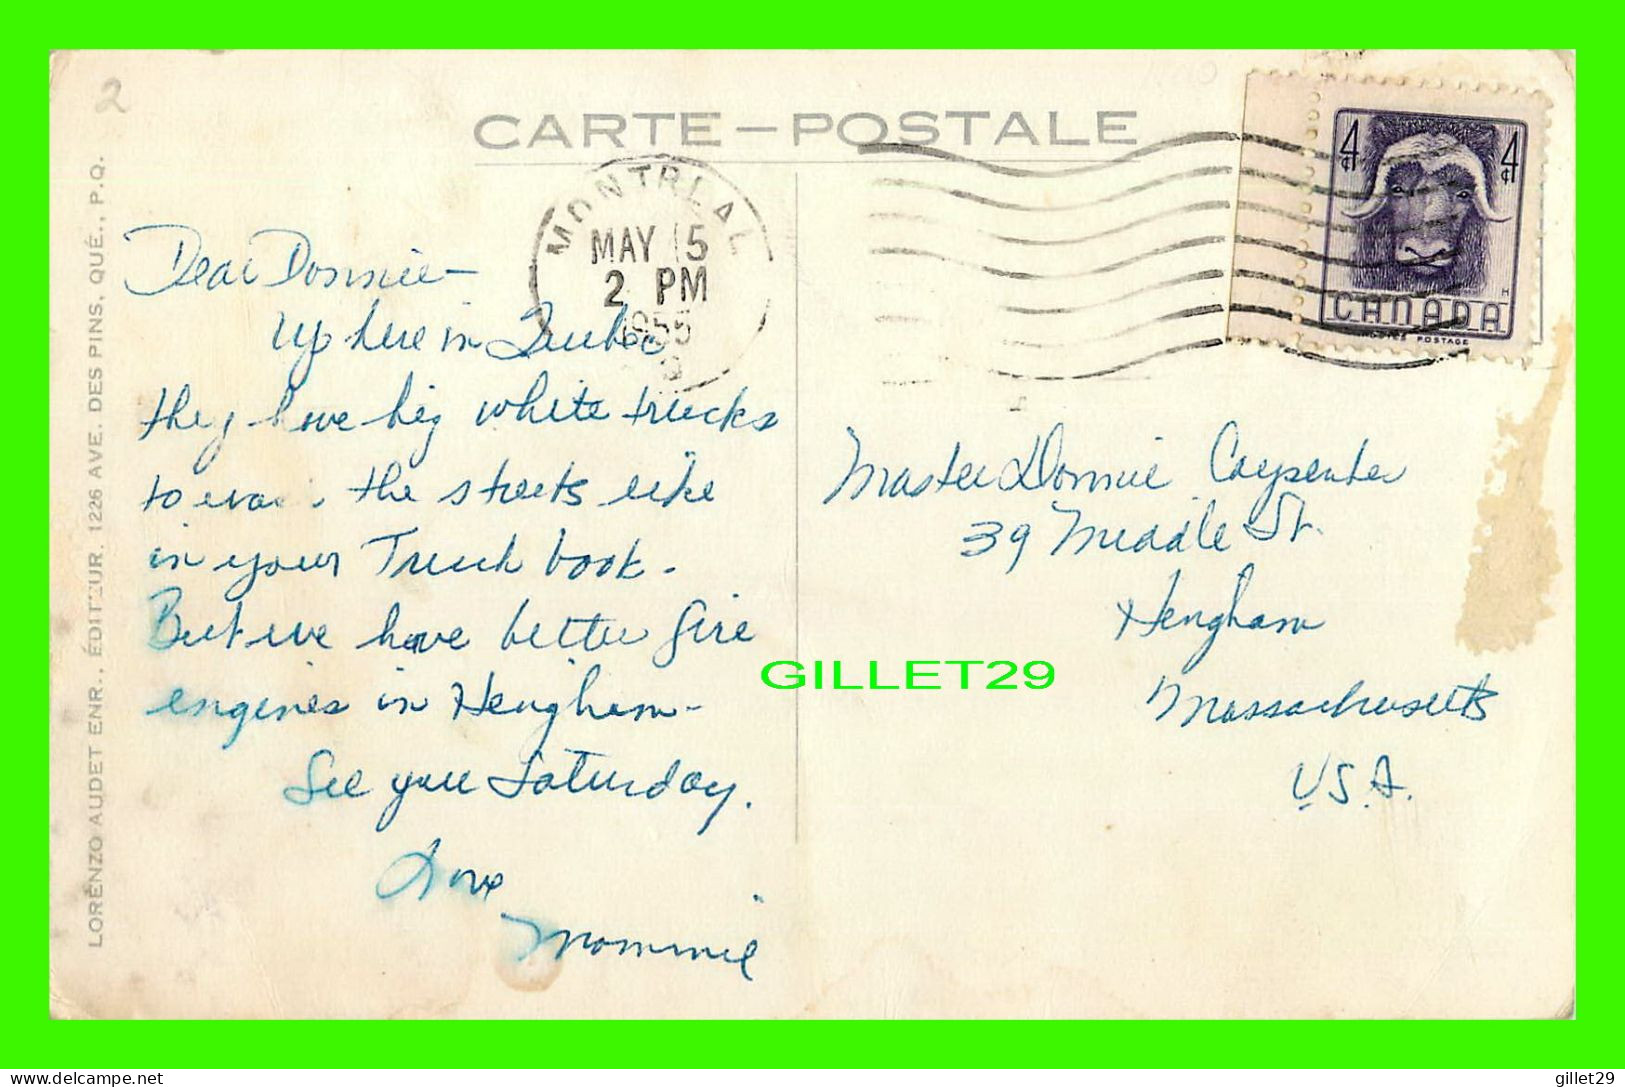 2
CARTE – POSTALE
LORENZO AUDET ENR., ÉDITEUR. 1226 AVE. DES PINS, QUÉ., P.Q.
MONTREAL
MAY 15
2 PM
1955
4¢ 4¢
CANADA
POSTAGE
Dear Donnie –
Up here in Quebec
they have big white trucks
to the streets like
in your Truck book.
But we have better fire
engines in Hingham –
See you Saturday.
Love
Mommie
Master Donnie Carpenter
39 Middle St.
Hingham
Massachusetts
U.S.A.
GILLET29
delcampe.net
gillet29